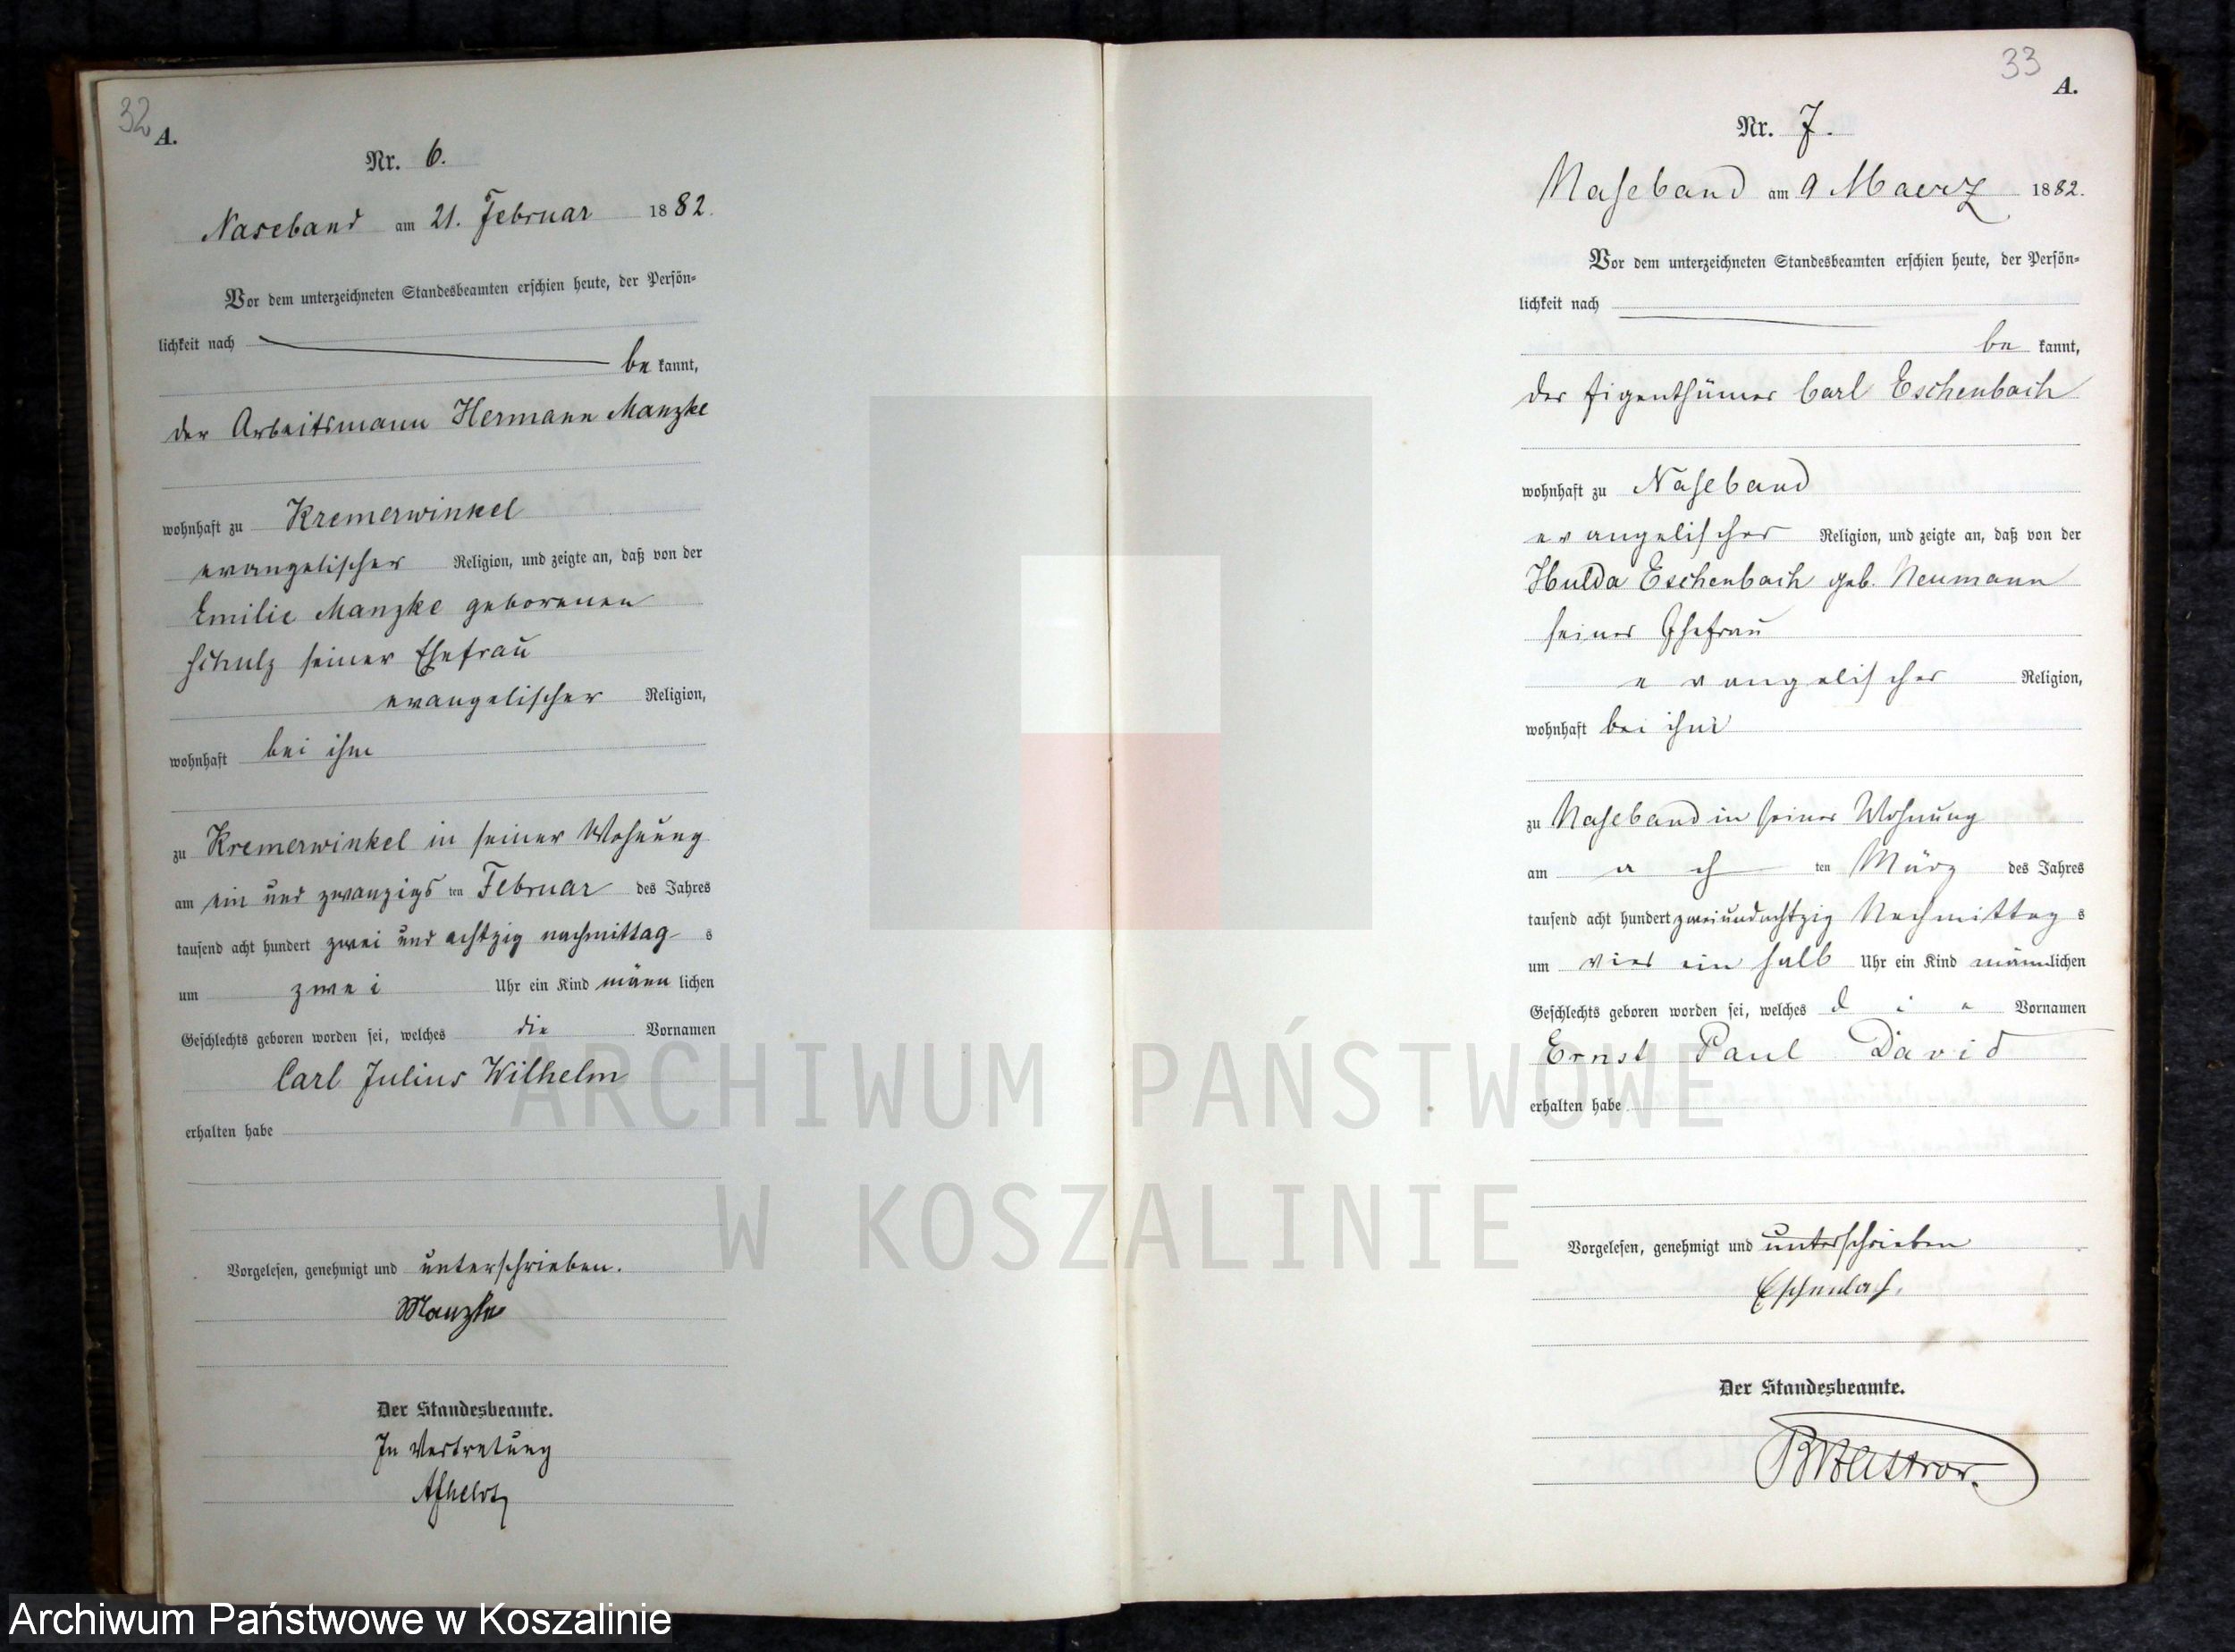 32
A.
Nr. 6.
Naseband am 21. Februar 1882.
Vor dem unterzeichneten Standesbeamten erschien heute, der Persön-
lichkeit nach
be kannt,
der Arbeitsmann Hermann Manzke
wohnhaft zu Kremerwinkel
evangelischer Religion, und zeigte an, daß von der
Emilie Manzke geborenen
Schulz seiner Ehefrau
evangelischer Religion,
wohnhaft bei ihm
zu Kremerwinkel in seiner Wohnung
am ein und zwanzigs ten Februar des Jahres
tausend acht hundert zwei und achtzig nachmittag s
um zwei Uhr ein Kind männ lichen
Geschlechts geboren worden sei, welches die Vornamen
Carl Julius Wilhelm
erhalten habe
Vorgelesen, genehmigt und unterschrieben.
Manzke
Der Standesbeamte.
In Vertretung
33
A.
Nr. 7.
Naseband am 9 Maerz 1882.
Vor dem unterzeichneten Standesbeamten erschien heute, der Persön-
lichkeit nach
be kannt,
der Eigenthümer Carl Eschenbach
wohnhaft zu Naseband
evangelischer Religion, und zeigte an, daß von der
Hulda Eschenbach geb. Neumann
seiner Ehefrau
evangelischer Religion,
wohnhaft bei ihm
zu Naseband in seiner Wohnung
am ach ten März des Jahres
tausend acht hundert zweiundachtzig Nachmittag s
um vier ein halb Uhr ein Kind männlichen
Geschlechts geboren worden sei, welches die Vornamen
Ernst Paul David
erhalten habe
Vorgelesen, genehmigt und unterschrieben
Eschenbach.
Der Standesbeamte.
ARCHIWUM PAŃSTWOWE
W KOSZALINIE
Archiwum Państwowe w Koszalinie